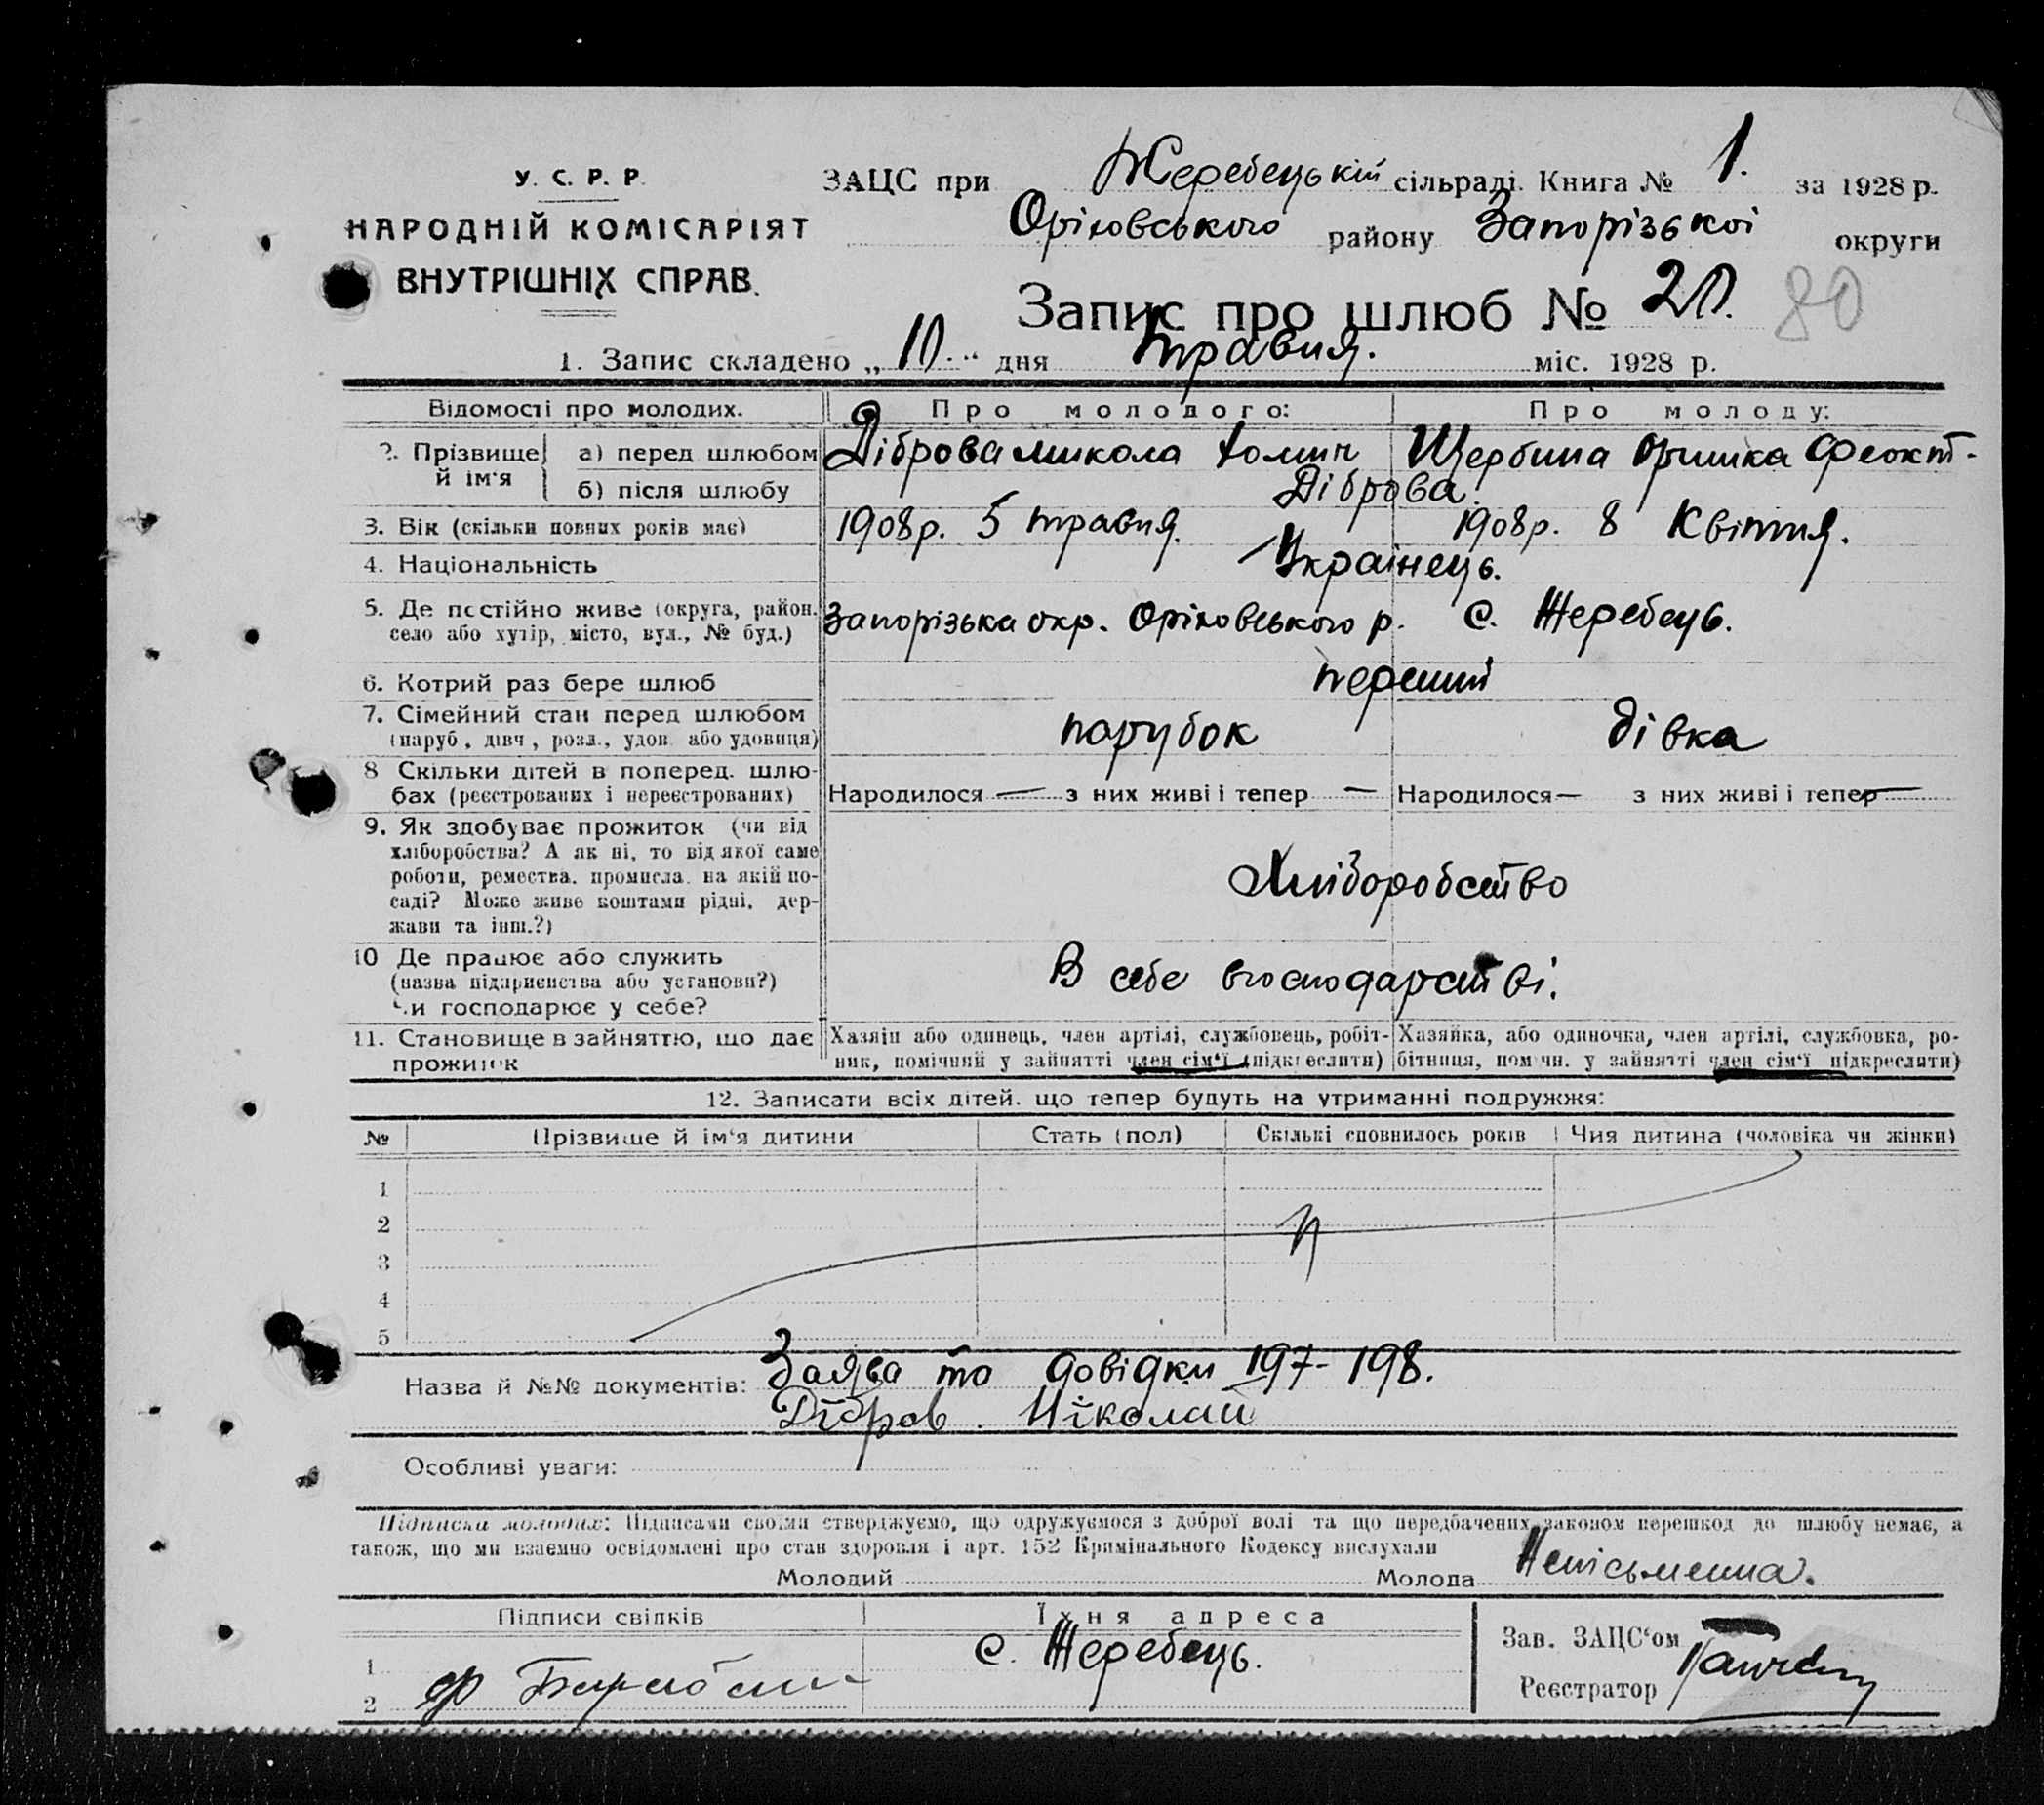 У. С. Р. Р.
НАРОДНІЙ КОМІСАРІЯТ
ВНУТРІШНІХ СПРАВ.
ЗАЦС при Жеребецькій сільраді. Книга № 1. за 1928 р.
Оріховського району Запорізької округи
Запис про шлюб № 20. 80
1. Запис складено „10.“ дня травня. міс. 1928 р.
Відомості про молодих. Про молодого: Про молоду:
2. Прізвище й ім'я а) перед шлюбом Діброва Микола Хомич Щербина Оришка Феокт-
б) після шлюбу Діброва.
3. Вік (скільки повних років має) 1908р. 5 травня. 1908р. 8 Квітня.
4. Національність Українець.
5. Де постійно живе (округа, район. Запорізька окр. Оріховського р. с. Жеребець.
село або хутір, місто, вул., № буд.)
6. Котрий раз бере шлюб перший
7. Сімейний стан перед шлюбом парубок дівка
(паруб, дівч, розл., удов. або удовиця)
8 Скільки дітей в поперед. шлю-
бах (реєстрованих і нереєстрованих) Народилося — з них живі і тепер — Народилося — з них живі і тепер —
9. Як здобуває прожиток (чи від
хліборобства? А як ні, то від якої саме
роботи, ремества. промисла. на якій по- Хліборобство
саді? Може живе коштами рідні, дер-
жави та інш.?)
10 Де працює або служить В себе вгосподарстві.
(назва підприємства або установи?)
Чи господарює у себе?
11. Становище в зайняттю, що дає Хазяїн або одинець, член артілі, службовець, робіт- Хазяйка, або одиночка, член артілі, службовка, ро-
прожиток ник, помічний у зайнятті член сім'ї (підкреслити) бітниця, помічн. у зайнятті член сім'ї підкреслити)
12. Записати всіх дітей. що тепер будуть на утриманні подружжя:
№ Прізвище й ім'я дитини Стать (пол) Скількі сповнилось років Чия дитина (чоловіка чи жінки)
1
2
3
4
5
Назва й №№ документів: Заява та довідки 197-198.
Дібров. Ніколай
Особливі уваги:
Підписи молодих: Підписами своїми стверджуємо, що одружуємося з доброї волі та що передбачених законом перешкод до шлюбу немає, а
також, що ми взаємно освідомлені про стан здоровля і арт. 152 Кримінального Кодексу вислухали
Молодий Молода Неписьменна.
Підписи свідків Їхня адреса
1 с. Жеребець. Зав. ЗАЦС'ом
2 Реєстратор